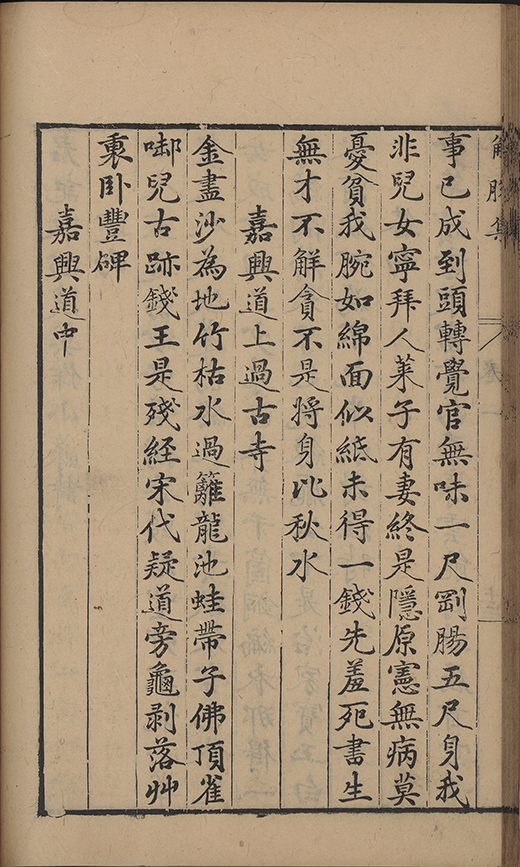 解脫集
卷一
事已成到頭轉覺官無味一尺剛腸五尺身我
非兒女寧拜人萊子有妻終是隱原憲無病莫
憂貧我腕如綿面似紙未得一錢先羞死書生
無才不解貪不是將身比秋水
嘉興道上過古寺
金盡沙為地竹枯水過籬龍池蛙帶子佛頂雀
啣兒古跡錢王是殘經宋代疑道旁龜剥落艸
裏卧豐碑
嘉興道中